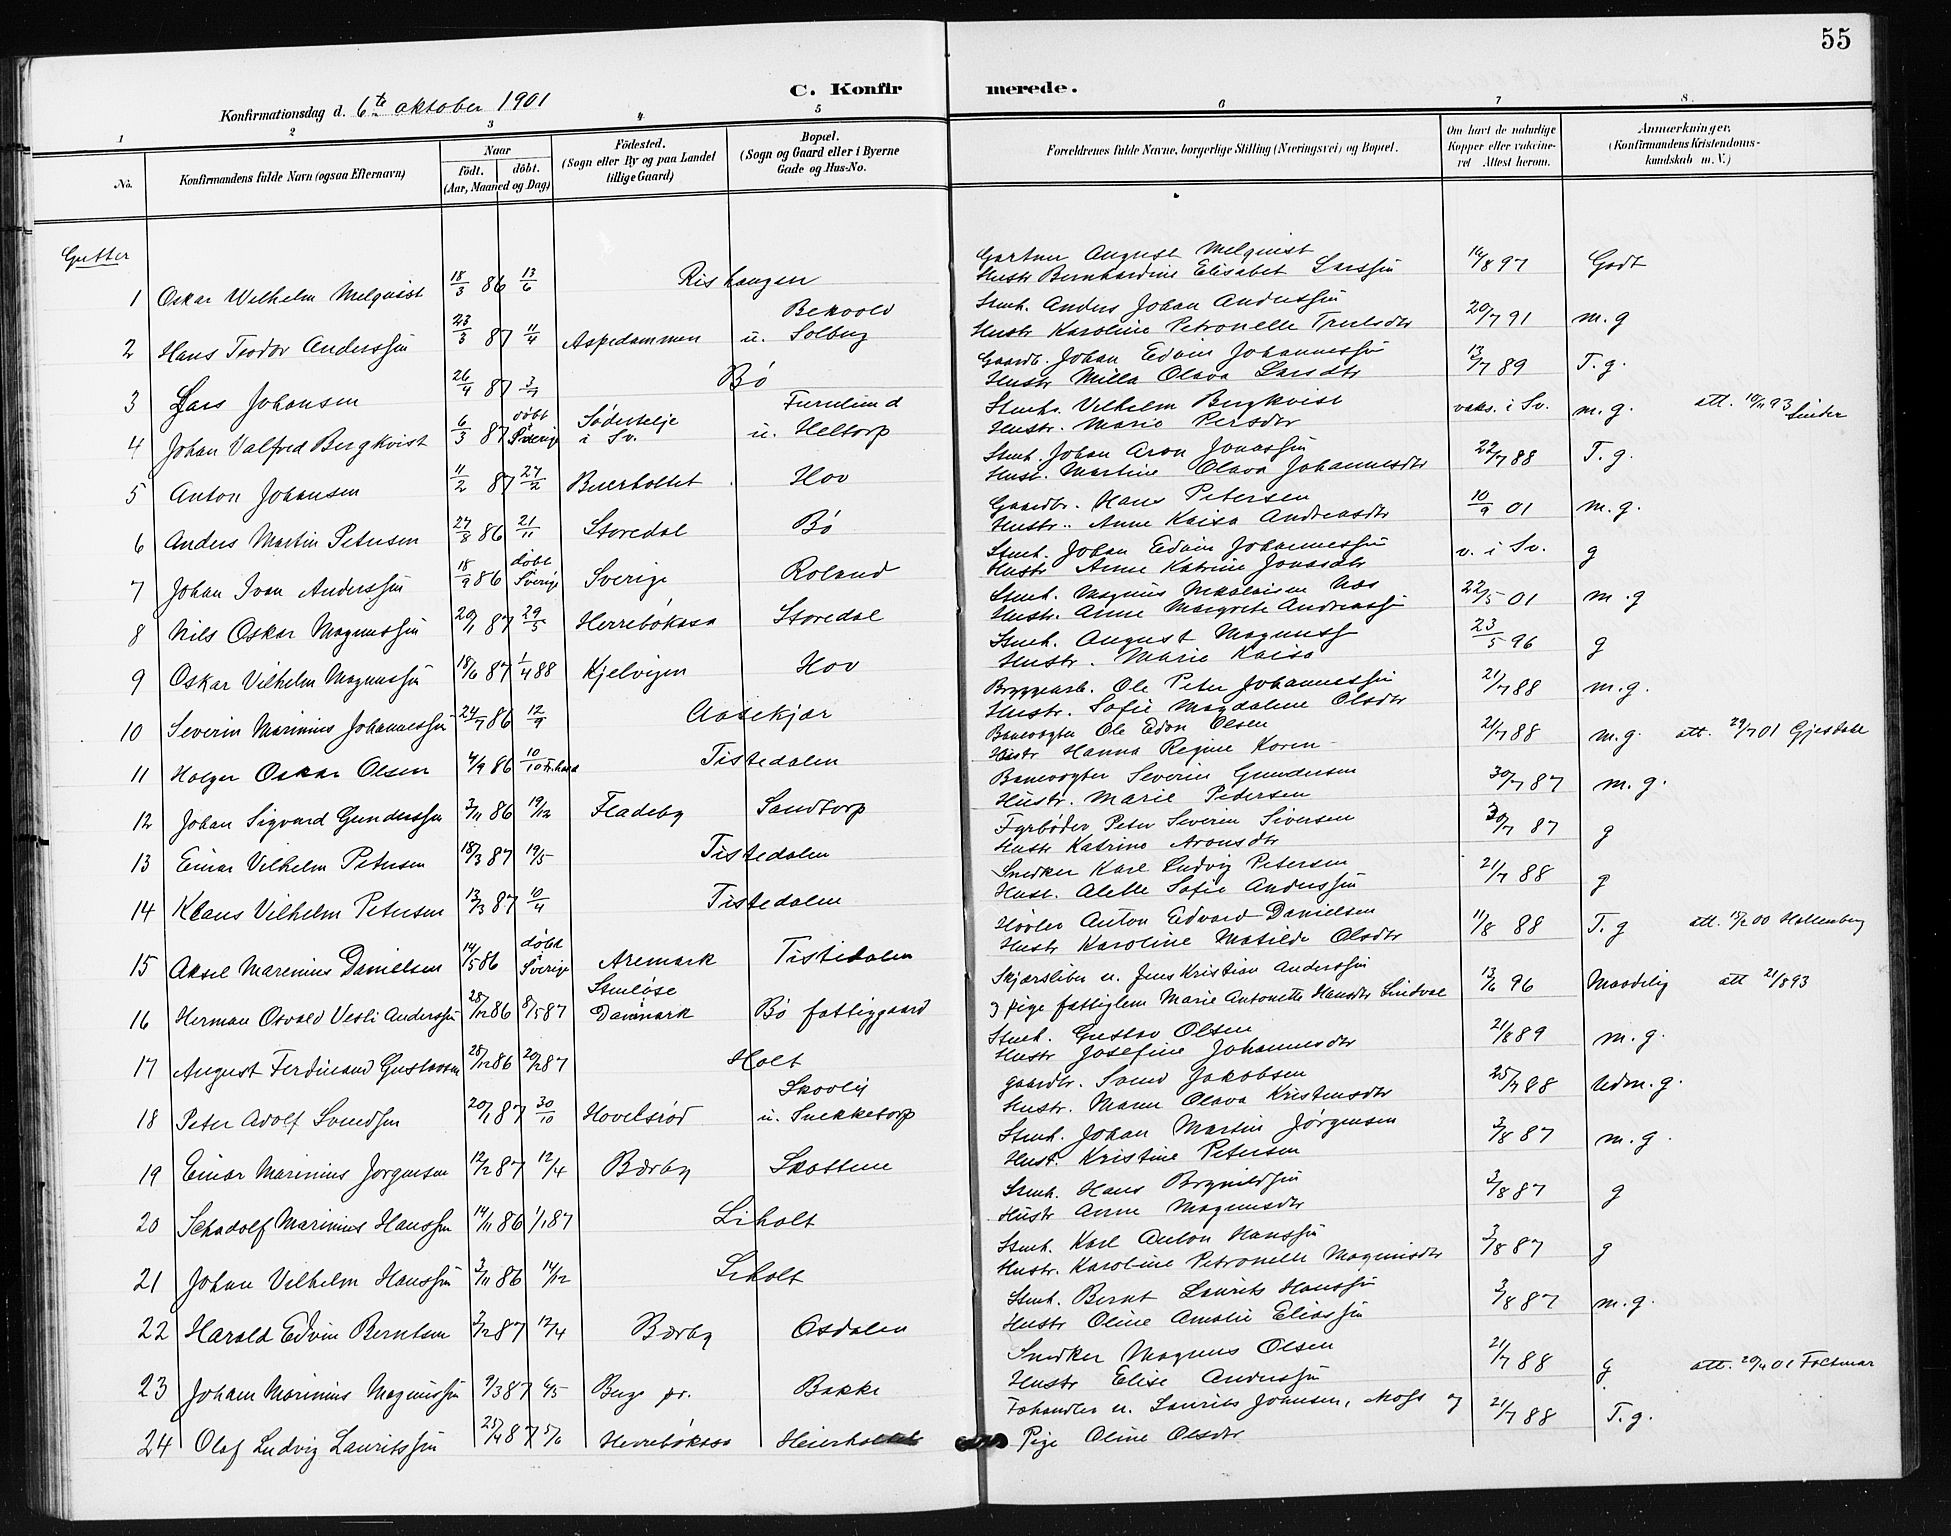 55
C. Konfirmerede.
Konfirmationsdag d. 6te oktober 1901
1 2 3 4 5 6 7 8.
No. Konfirmandens fulde Navn (ogsaa Efternavn) Naar født. døbt. (Aar, Maaned og Dag) Fødested. (Sogn eller By og paa Landet tillige Gaard) Bopæl. (Sogn og Gaard eller i Byerne Gade og Hus-No. Forældrenes fulde Navne, borgerlige Stilling (Næringsvei) og Bopæl. Om havt de naturlige Kopper eller vakcineret Attest herom. Anmærkninger. (Konfirmandens Kristendomskundskab m. V.)
Gutter
Gartner August Melqvist
1 Oskar Wilhelm Melqvist 18/3 86 13/6 Rishaugen Hustr Bernhardine Elisabet Larssen 16/8 97 Godt
Bekvold Stmh. Anders Johan Anderssen
2 Hans Teodor Anderssen 23/3 87 11/4 Aspedammen u. Solberg Hustr Karoline Petronelle Trulsdtr 20/7 91 m.g
Gaardb. Johan Edvin Johannessen
3 Lars Johansen 26/4 87 3/7 Bø Hustr Milla Olava Larsdtr 13/7 89 T.g.
døbt Södertelje Furulund Stmh. Vilhelm Bergkvist
4 Johan Valfred Bergkvist 6/3 87 Sverige i Sv. u. Heltorp Hustr. Marie Persdtr vaks. i Sv. m.g. att. 10/11 93
Stmh. Johan Aron Jonassen
5 Anton Johansen 11/2 87 27/2 Buerholtet Hov Hust. Martine Olava Johannesdtr 22/7 88 T.g.
Gaardbr. Hans Petersen
6 Anders Martin Petersen 27/8 86 21/11 Storedal Bø Hustr. Anne Kaisa Andreasdtr 10/9 01 m.g.
døbt Stmh. Johan Edvin Johannessen
7 Johan Ivan Anderssen 18/9 86 Sverige Sverige Roland Hustr Anne Katrine Jonasdtr v. i Sv. g
Stmh. Magnus Nikolaisen Næs
8 Nils Oskar Magnussen 20/1 87 29/5 Herrebøkasa Storedal Hustr. Anne Margrete Andreass 22/5 01 m.g
Stmh. August Magnuss
9 Oskar Vilhelm Magnussen 18/6 87 1/4 88 Kjelvigen Hov Hustr. Marie Kaisa 23/5 96 g
Bryggearb. Ole Peter Johannessen
10 Severin Marinius Johannessen 24/7 86 12/9 Aasekjær Hustr. Sofie Magdalene Olsdtr 21/7 88 m.g.
Banevogter Ole Edvn Olsen
11 Holger Oskar Olsen 4/9 86 10/10 Tistedalen Hustr Hanna Regine Koren 21/7 88 m.g. att. 29/7 01
Banevogter Severin Gundersen
12 Johan Sigvard Gunderssen 3/11 86 19/12 Fladeby Sandtorp Hustr. Marie Pedersen 30/7 87 m.g.
Fyrbøder Peter Severin Siversen
13 Einar Vilhelm Petersen 18/3 87 19/5 Tistedalen Hustr Katrine Aronsdtr 30/7 87 g
Snedker Karl Ludvig Petersen
14 Klaus Vilhelm Petersen 13/3 87 10/4 Tistedalen Hust. Alette Sofie Anderssen 21/7 88 g
døbt Høvler Anton Edvard Danielsen
15 Aksel Marenius Danielsen 14/5 86 Sverige Aremark Tistedalen Hustr Karoline Matilde Olsdtr 11/8 88 T.g att. 15/2 00 Hallenberg
Stenløse Skjærsliber u. Jens Kristian Anderssen
16 Herman Osvald Vesli Anderssen 28/12 86 8/5 87 Danmark Bø fattiggaard og pige fattiglem Marie Antonette Hansdtr Lindval 13/6 96 Maadelig att 21/8 93
Stmh. Gustav Olsen
17 August Ferdinand Gustavsen 28/12 86 20/2 87 Holt Hustr Josefine Johannesdtr 21/8 89 m.g.
Skovly gaardbr. Svend Jakobsen
18 Peter Adolf Svendsen 20/1 87 30/10 Hovelsrød u. Snekketorp Hustr. Maren Olava Kristensdtr 25/7 88 Udm.g.
Stmh. Johan Martin Jørgensen
19 Einar Marinius Jørgensen 12/2 87 12/4 Bærby Skottene Hust. Kristine Petersen 3/8 87 m.g.
Stmh. Hans Brynildsen
20 Schadolf Marinius Hanssen 14/11 86 1/1 87 Liholt Hustr Anne Magnusdtr 3/8 87 g
Stmh. Karl Anton Hanssen
21 Johan Vilhelm Hanssen 3/11 86 14/12 Liholt Hustr. Karoline Petronelle Magnusdtr 3/8 87 g
Stmh. Bernt Laurits Hanssen
22 Harald Edvin Berntsen 3/2 87 12/4 Bærby Osdalen Hustr Oline Amalie Eliassen 3/8 87 m.g.
Snedker Magnus Olsen
23 Johan Marinius Magnussen 9/3 87 6/5 Berg pr. Bakke Hustr Elise Anderssen 21/7 88 g att. 20/4 01
Fæhandler u. Laurits Johnsen, Moss og
24 Olaf Ludvig Lauritssen 25/4 87 5/6 Herrebøkasa Pige Oline Olsdtr 21/7 88 T.g.